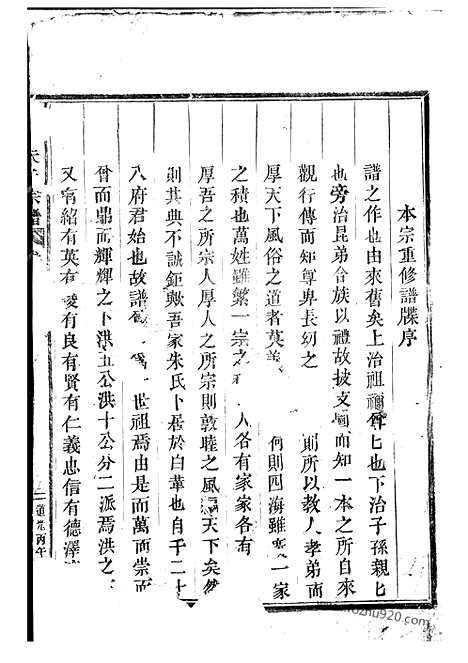 本宗重修譜牒序
譜之作也由來舊矣上治祖禰尊匕也下治子孫親匕
也旁治昆弟合族以禮故披支圖而知一本之所自來
觀行傳而知尊卑長幼之 則所以教人孝弟而
厚天下風俗之道者莫 何則四海雖 一家
之積也萬姓雖繁一宗之 人各有家家各有
厚吾之所宗人厚人之所宗則敦睦之風 天下矣然
則其典不誠鉅歟吾家朱氏卜居於白華也自千二十
八府君始也故譜 為 世祖焉由是而萬而崇而
曾而鼎而輝輝之下洪五公洪十公分二派焉洪之
又有紹有英有 有良有賢有仁義忠信有德澤
宗譜
二
道光丙午
zhu920.com